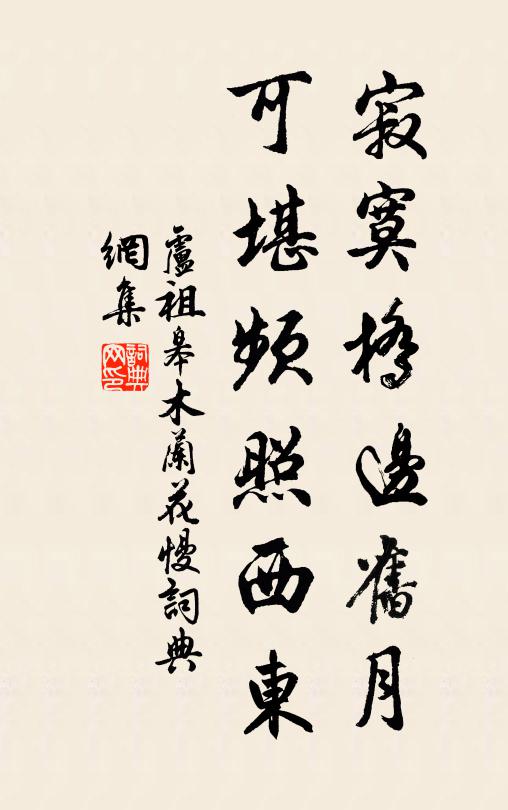 寂寞橋邊舊月
可堪頻照西東
盧祖皋木蘭花慢詞典
網集
詞典網印